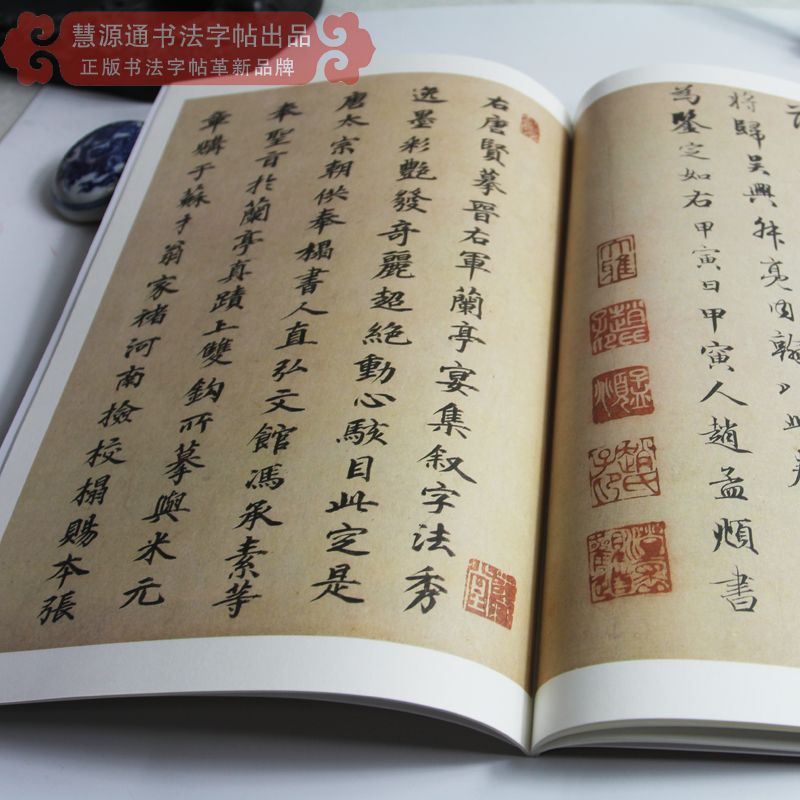 慧源通书法字帖出品
正版书法字帖革新品牌
將歸吳興叔亮内翰以此卷
為鑒定如右甲寅日甲寅人趙孟頫書
右唐賢摹晉右軍蘭亭宴集叙字法秀
逸墨彩艷發奇麗超絶動心駭目此定是
唐太宗朝供奉搨書人直弘文館馮承素等
奉聖旨於蘭亭真蹟上雙鉤所摹與米元
章購于蘇才翁家褚河南撿校搨賜本張